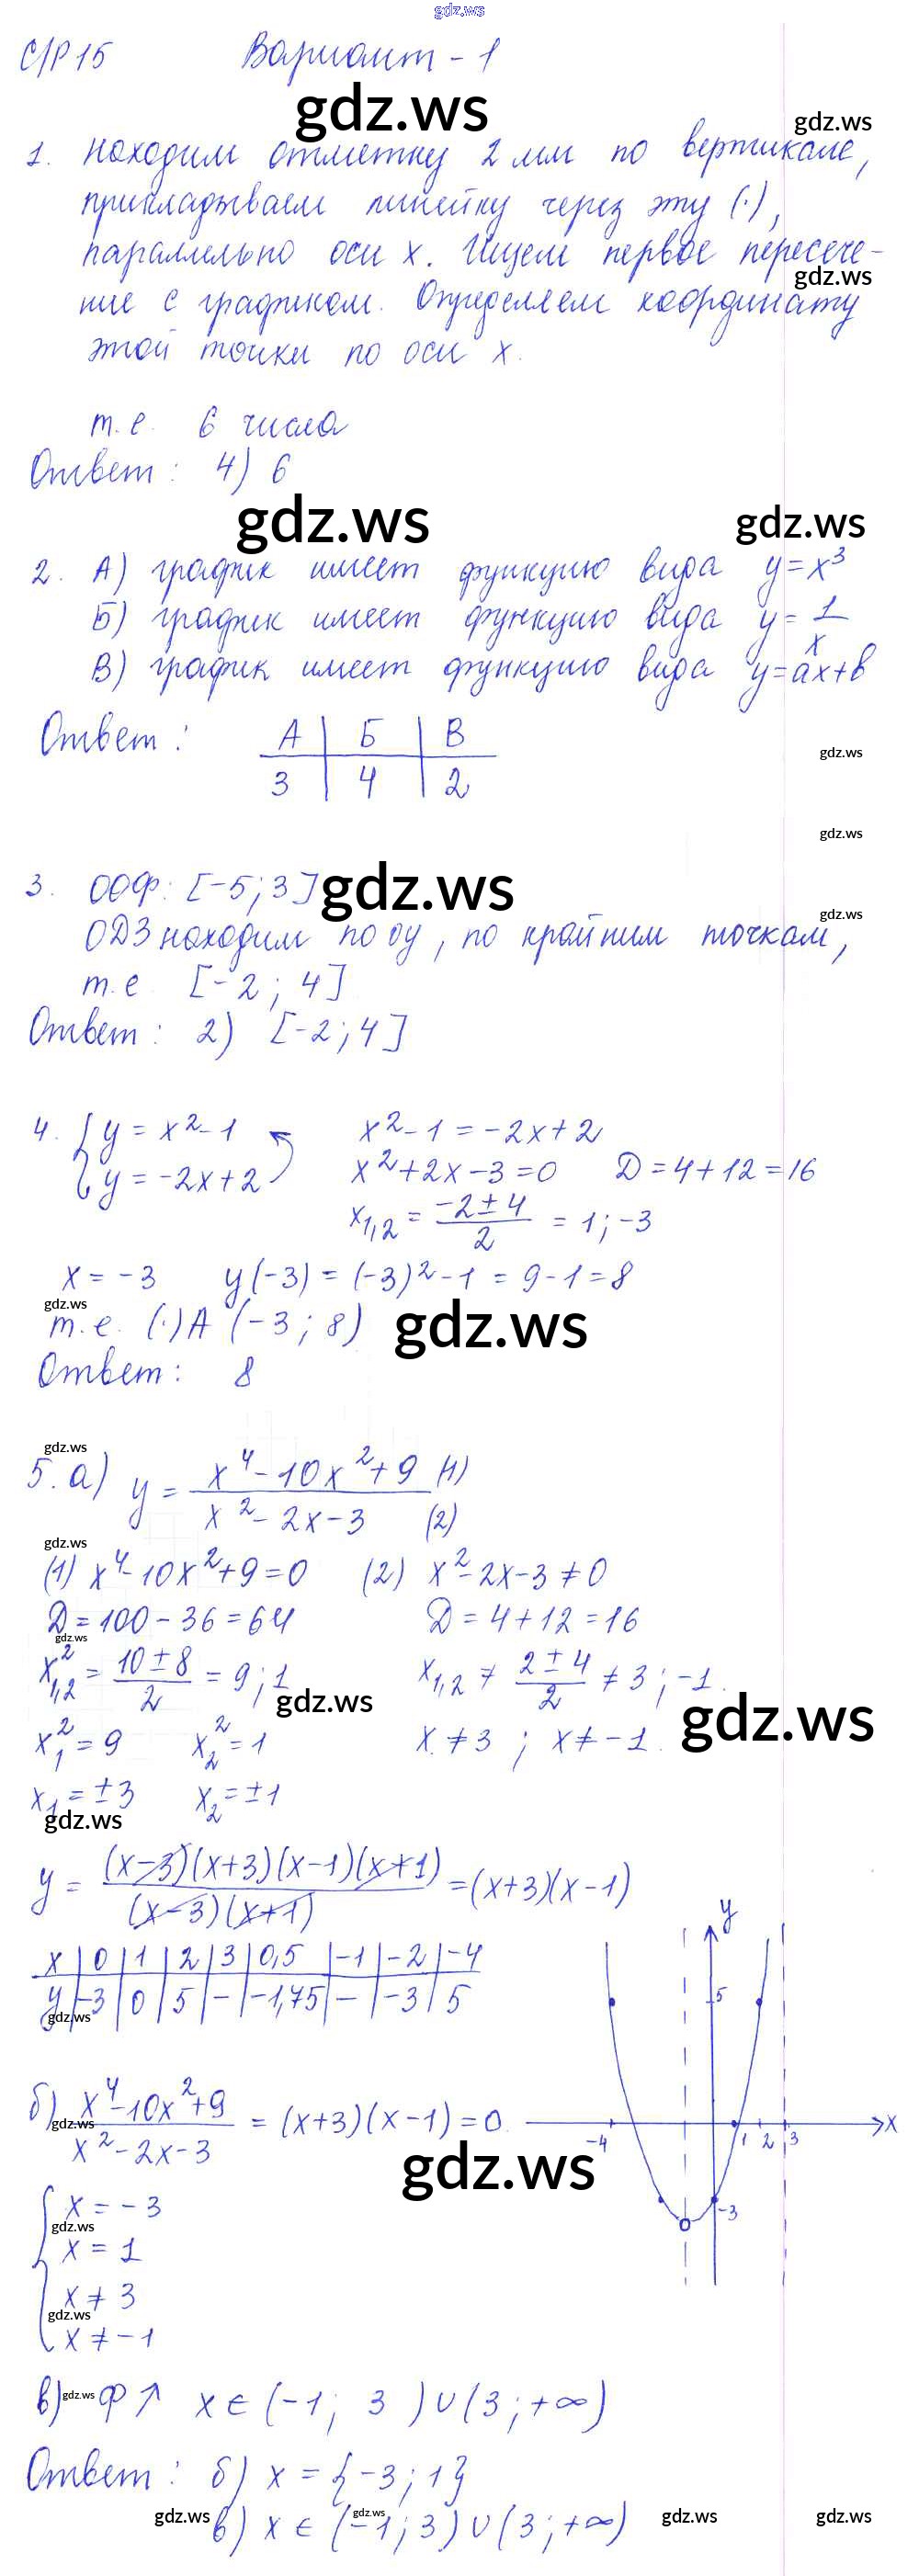 gdz.ws
С/Р 15 Вариант - 1
gdz.ws
gdz.ws
1. Находим отметку 2 мм по вертикале,
прикладываем линейку через эту (·),
параллельно оси x. Ищем первое пересече-
gdz.ws
ние с графиком. Определяем координату
этой точки по оси x.
т.е. 6 числа
Ответ: 4) 6
gdz.ws
gdz.ws
2. А) график имеет функцию вида y = x³
Б) график имеет функцию вида y = 1/x
В) график имеет функцию вида y = ax + b
Ответ: А | Б | В
gdz.ws
3 | 4 | 2
gdz.ws
3. ООФ: [-5; 3]
gdz.ws
gdz.ws
ОДЗ находим по оу, по крайним точкам,
т.е. [-2; 4]
Ответ: 2) [-2; 4]
4. { y = x² - 1 x² - 1 = -2x + 2
y = -2x + 2 x² + 2x - 3 = 0 Д = 4 + 12 = 16
x1,2 = (-2 ± 4)/2 = 1; -3
x = -3 y(-3) = (-3)² - 1 = 9 - 1 = 8
gdz.ws
т.е. (·) А (-3; 8)
gdz.ws
Ответ: 8
gdz.ws
5. а) y = (x⁴ - 10x² + 9)/(x² - 2x - 3) (1) (2)
gdz.ws
(1) x⁴ - 10x² + 9 = 0 (2) x² - 2x - 3 ≠ 0
Д = 100 - 36 = 64 Д = 4 + 12 = 16
gdz.ws
x²1,2 = (10 ± 8)/2 = 9; 1 x1,2 ≠ (2 ± 4)/2 ≠ 3; -1.
gdz.ws
gdz.ws
x1² = 9 x2² = 1 x ≠ 3; x ≠ -1.
x1 = ±3 x2 = ±1
gdz.ws
y = (x-3)(x+3)(x-1)(x+1)/(x-3)(x+1) = (x+3)(x-1)
x | 0 | 1 | 2 | 3 | 0,5 | -1 | -2 | -4
y | -3 | 0 | 5 | - | -1,75 | - | -3 | 5
gdz.ws
y
5
-4 1 2 3 x
-3
б) (x⁴ - 10x² + 9)/(x² - 2x - 3) = (x+3)(x-1) = 0.
gdz.ws
gdz.ws
{ x = -3
gdz.ws
x = 1
x ≠ 3
gdz.ws
x ≠ -1
в) ф ↑ x ∈ (-1; 3) ∪ (3; +∞)
gdz.ws
Ответ: б) x = {-3; 1}
в) x ∈ (-1; 3) ∪ (3; +∞)
gdz.ws gdz.ws gdz.ws gdz.ws